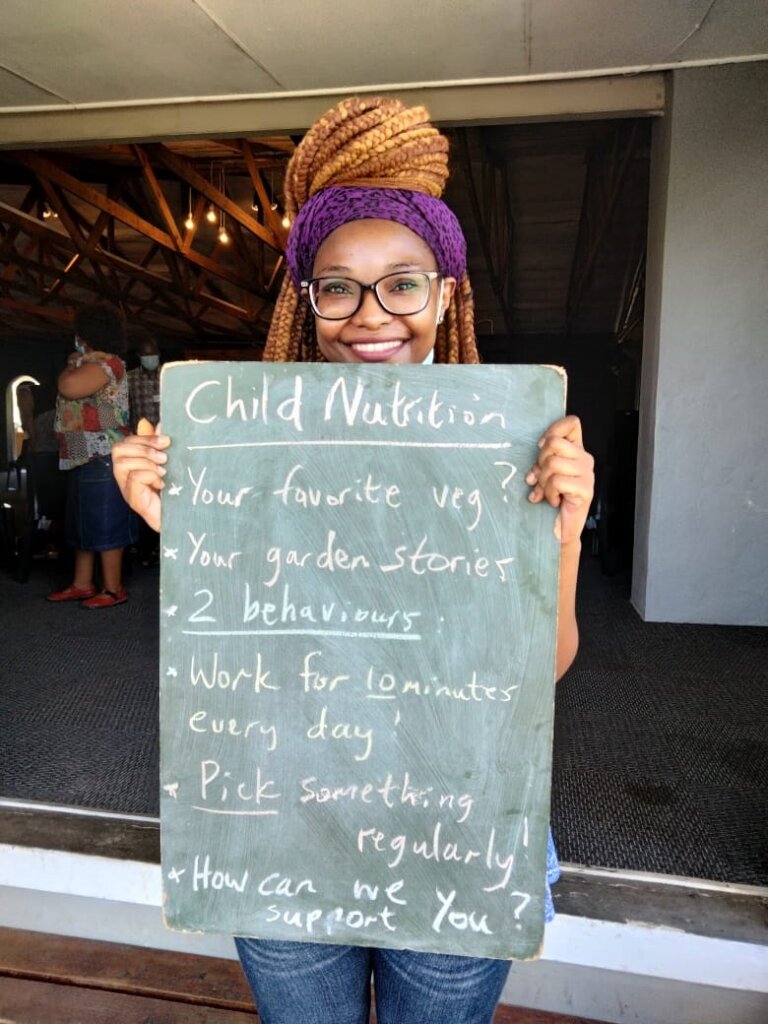 Child Nutrition
* Your favorite veg?
* Your garden stories
* 2 behaviours:
* Work for 10 minutes
every day!
* Pick something
regularly!
* How can we
support You?